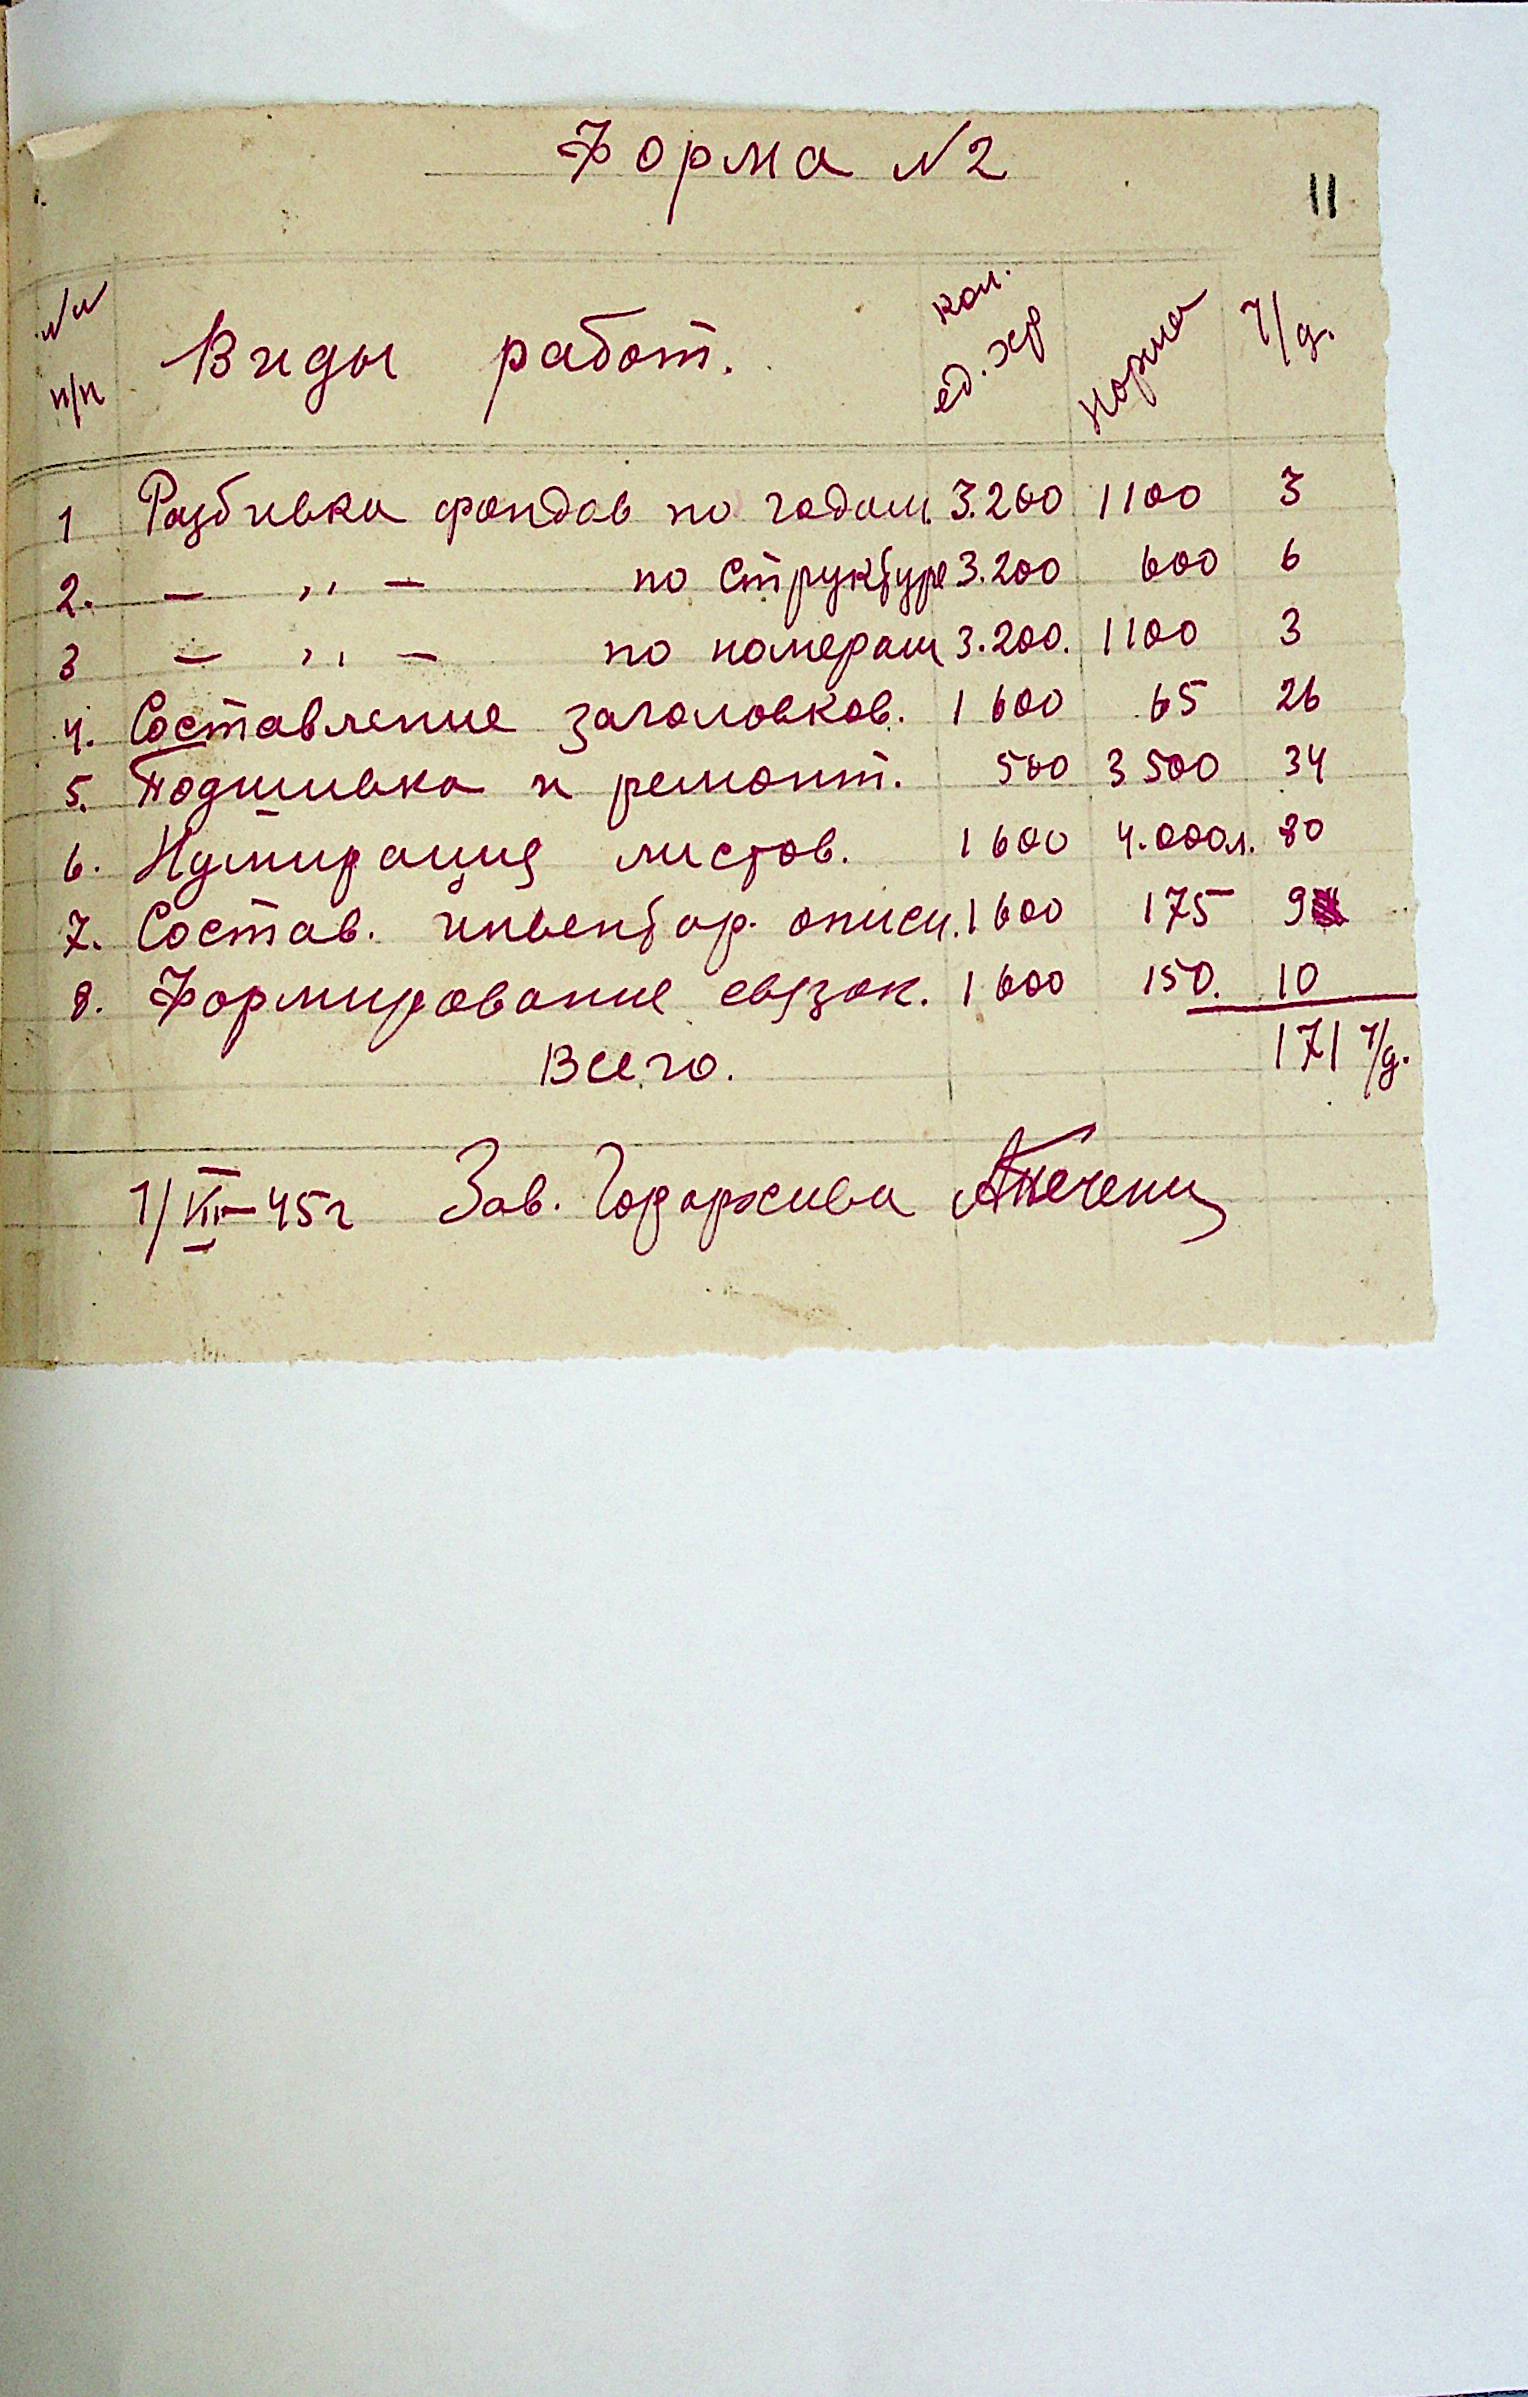 Форма №2
11
№№ п/п Виды работ. кол. ед. хр норма ч/д.
1 Разбивка фондов по годам 3.200 1100 3
2. — ,, — по структуре 3.200 600 6
3 — ,, — по номерам 3.200. 1100 3
4. Составление заголовков. 1600 65 26
5. Подшивка и ремонт. 500 3500 34
6. Нумирация листов. 1600 4.000л. 80
7. Состав. инвентар. описи. 1600 175 9
8. Формирование связок. 1600 150. 10
Всего. 171 ч/д.
Зав. Госархива